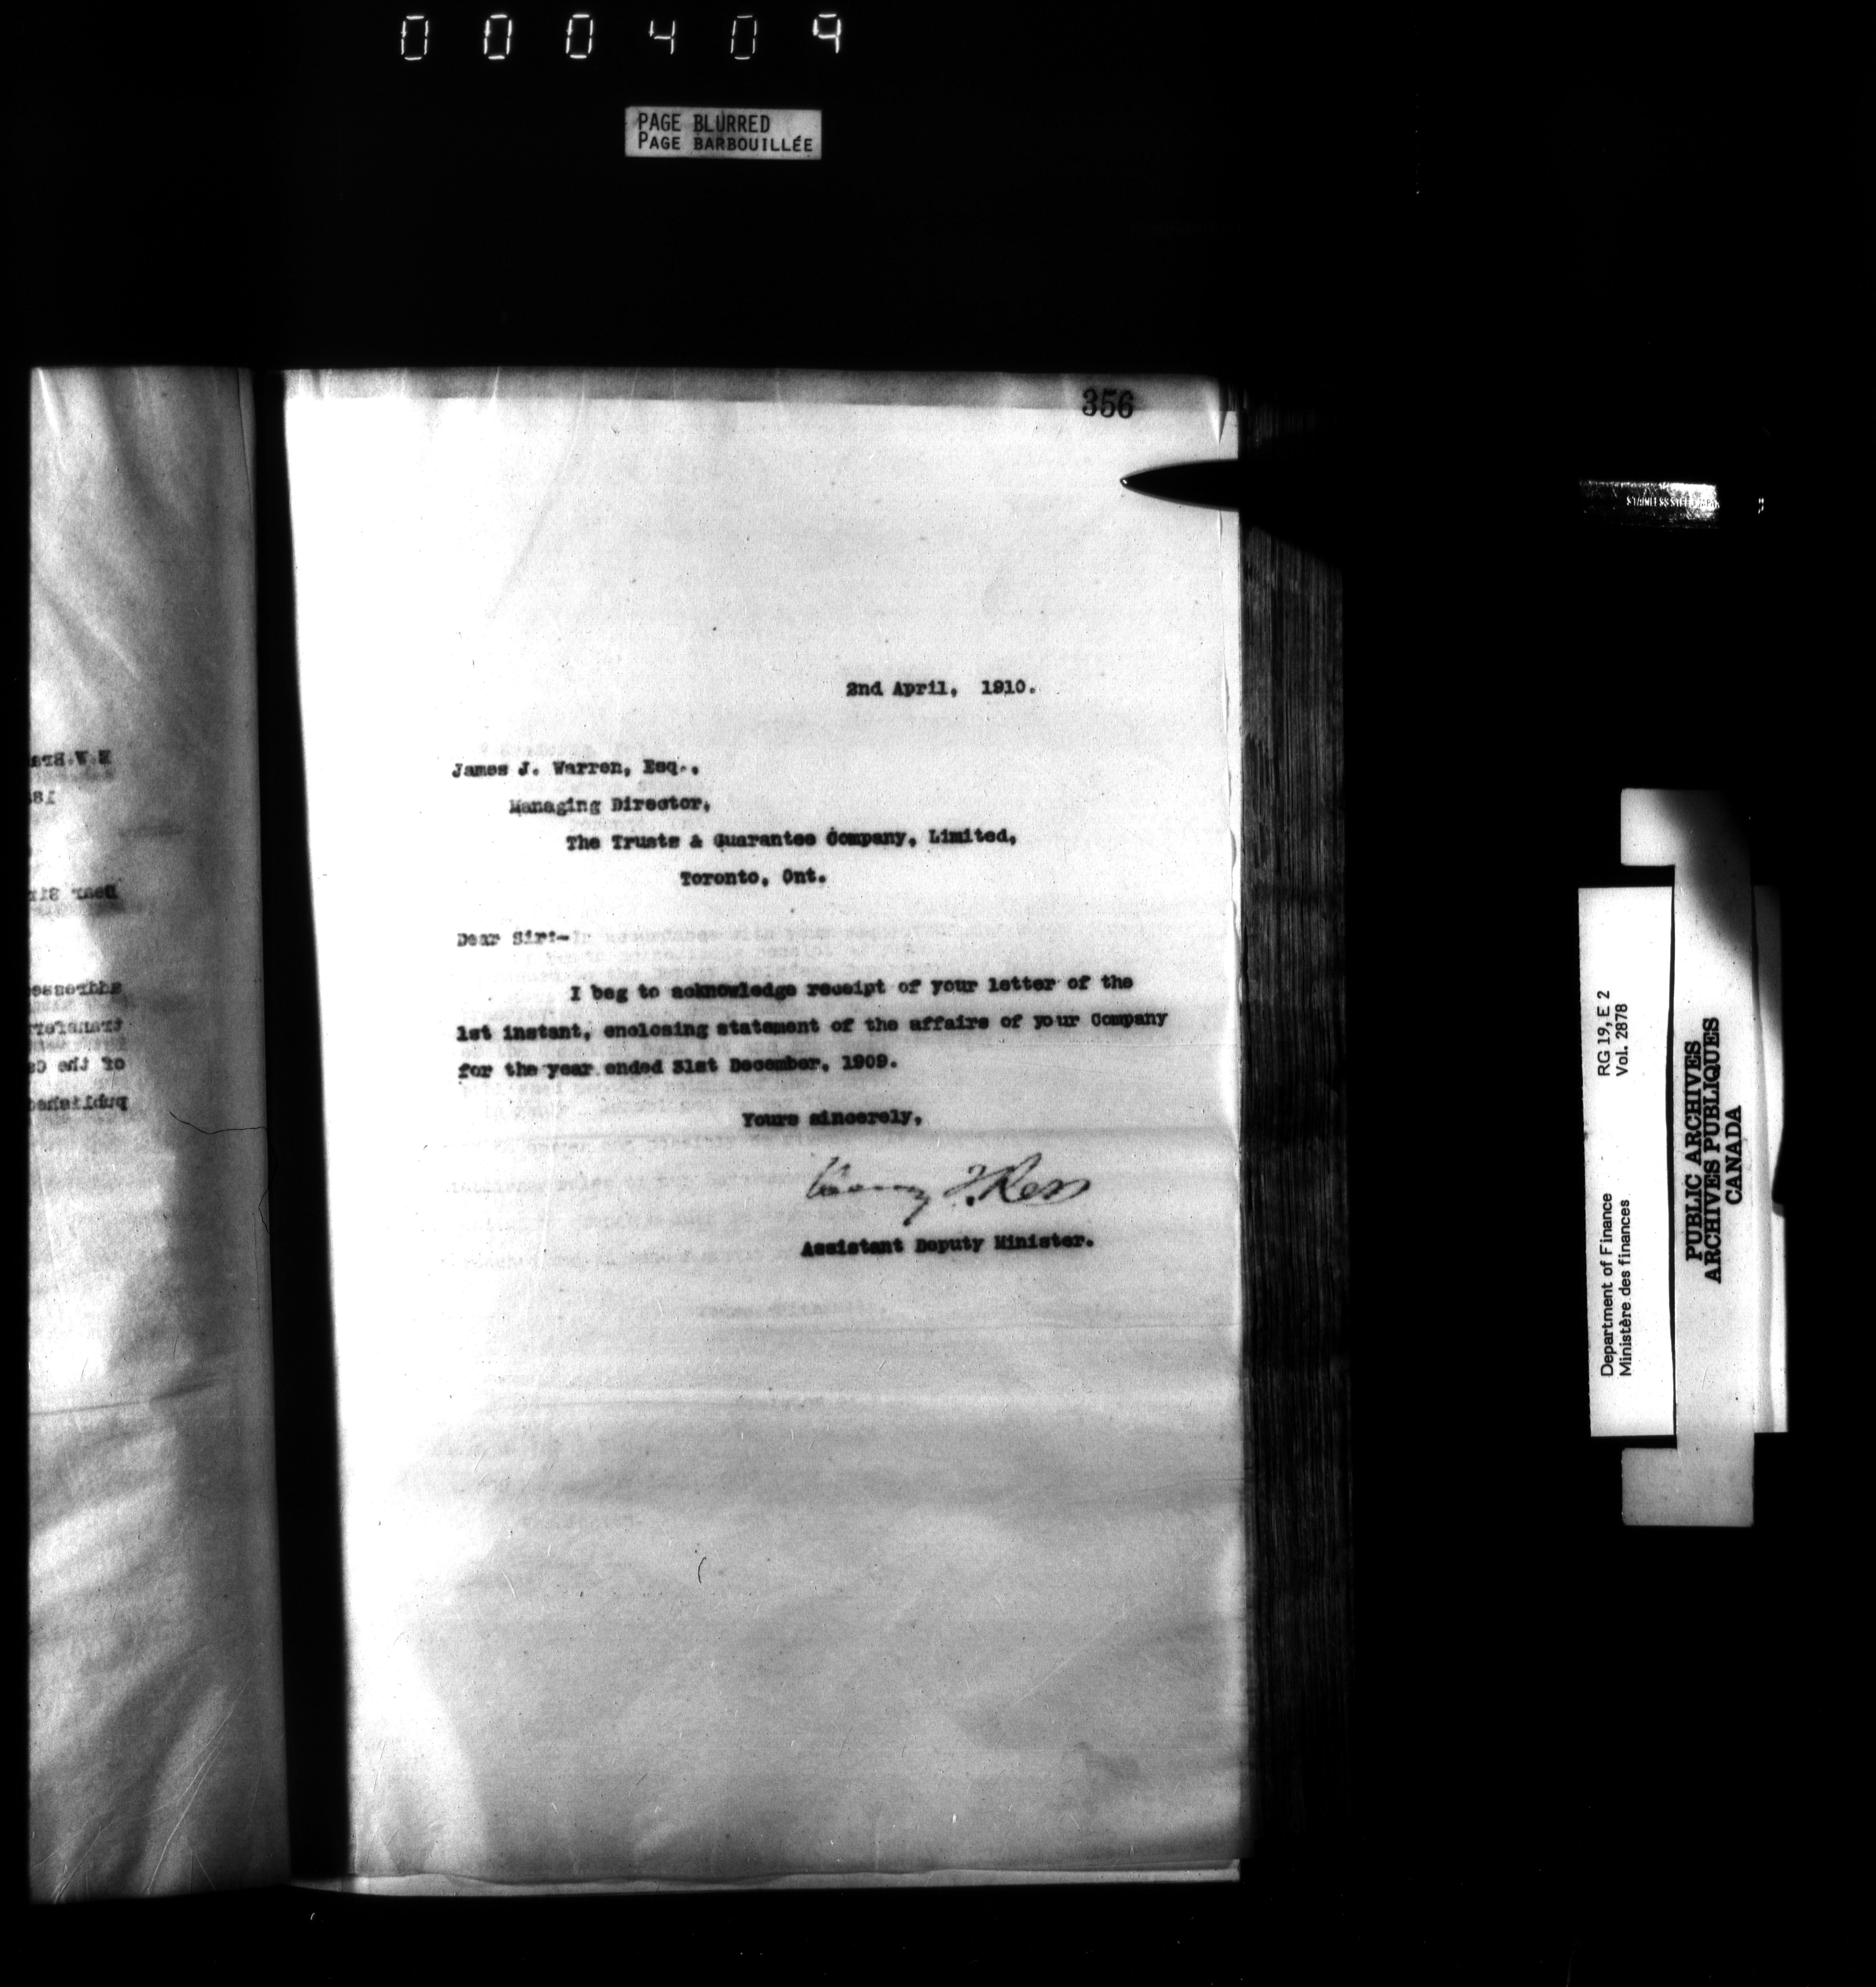 000409
PAGE BLURRED
PAGE BARBOUILLÉE
356
2nd April, 1910.
James J. Warren, Esq.,
Managing Director,
The Trusts & Guarantee Company, Limited,
Toronto, Ont.
Dear Sir:-
I beg to acknowledge receipt of your letter of the
1st instant, enclosing statement of the affairs of your Company
for the year ended 31st December, 1909.
Yours sincerely,
Henry T. Ross
Assistant Deputy Minister.
Dear Sir
addresse
transfer
of the Co
published
STAINLESS STEEL
Department of Finance
Ministère des finances
RG 19, E 2
Vol. 2878
PUBLIC ARCHIVES
ARCHIVES PUBLIQUES
CANADA